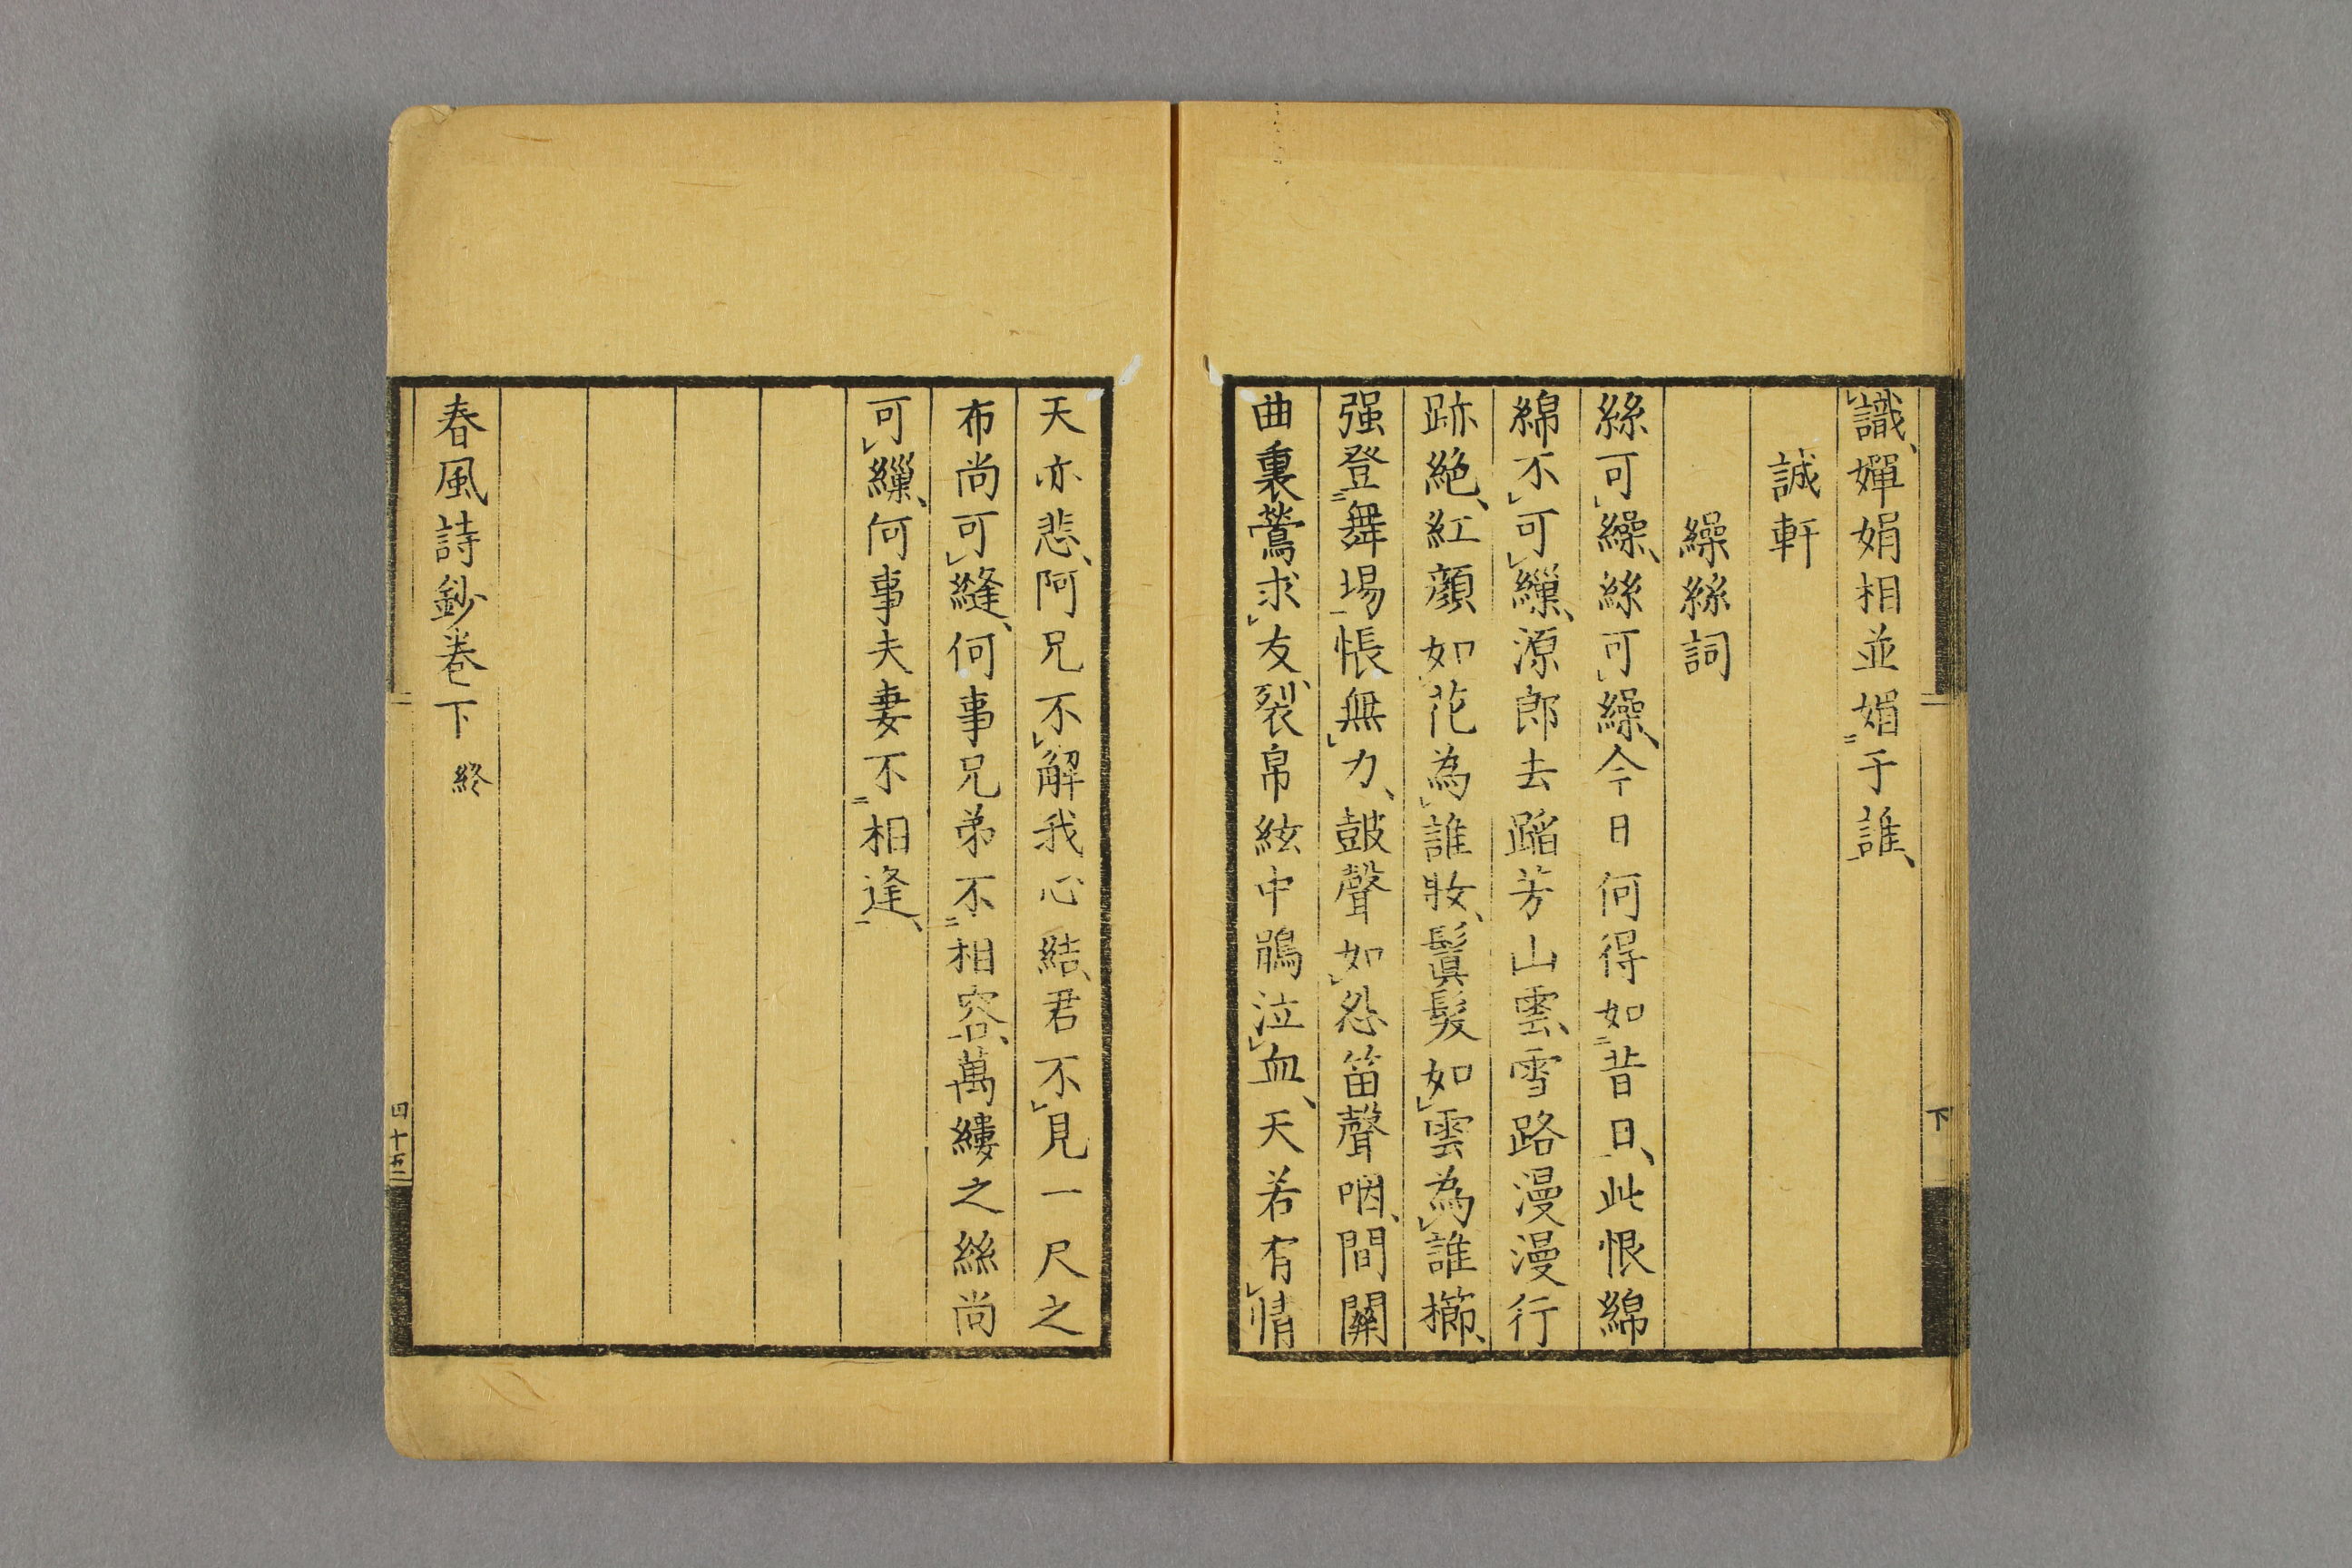 識、嬋娟相並媚于誰、
誠軒
繰絲詞
絲可繰、絲可繰、今日何得如昔日、此恨綿
綿不可繅、源郎去蹈芳山雲、雪路漫漫行
跡絶、紅顔如花為誰妝、鬒髮如雲為誰櫛、
强登舞場悵無力、鼓聲如怨笛聲咽、間關
曲裏鶯求友、裂帛絃中鵑泣血、天若有情
下
天亦悲、阿兄不解我心結、君不見一尺之
布尚可縫、何事兄弟不相容、萬縷之絲尚
可繅、何事夫妻不相逢、
春風詩鈔卷下 終
四十五